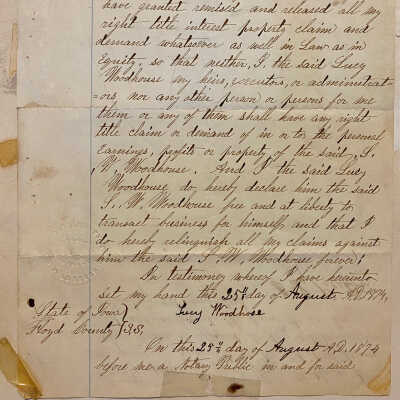 have granted remised and released all my
right title interest property claim and
demand whatsoever as well in Law as in
Equity, so that neither, I, the said Lucy
Woodhouse my heirs, executors, or administrat-
=ors, nor any other person or persons for me
them or any of them shall have any right
title claim or demand of in or to, the personal
earnings, profits or property of the said, S.
W. Woodhouse. And I the said Lucy
Woodhouse, do, hereby declare him the said
S. W. Woodhouse free and at liberty to
transact business for himself, and that I
do hereby relinquish all my claims against
him the said S. W. Woodhouse forever;
In testimony whereof I have hereunto
set my hand this 25th day of August, A.D. 1874,
State of Iowa } Lucy Woodhose
Floyd County } S.S,
On this 25th day of August A.D. 1874
before me a Notary Public in and for said